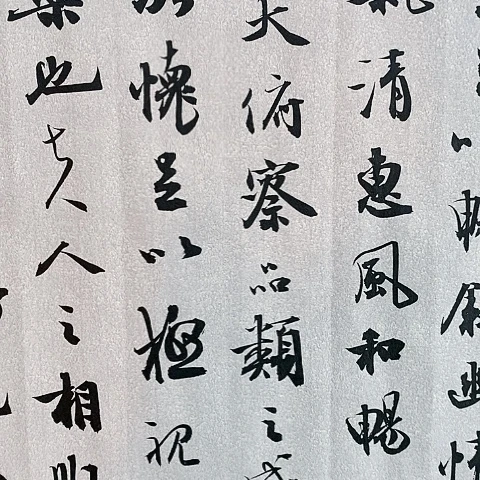 以暢叙幽情
氣清惠風和暢
大俯察品類之盛
懷足以極視
樂也夫人之相與